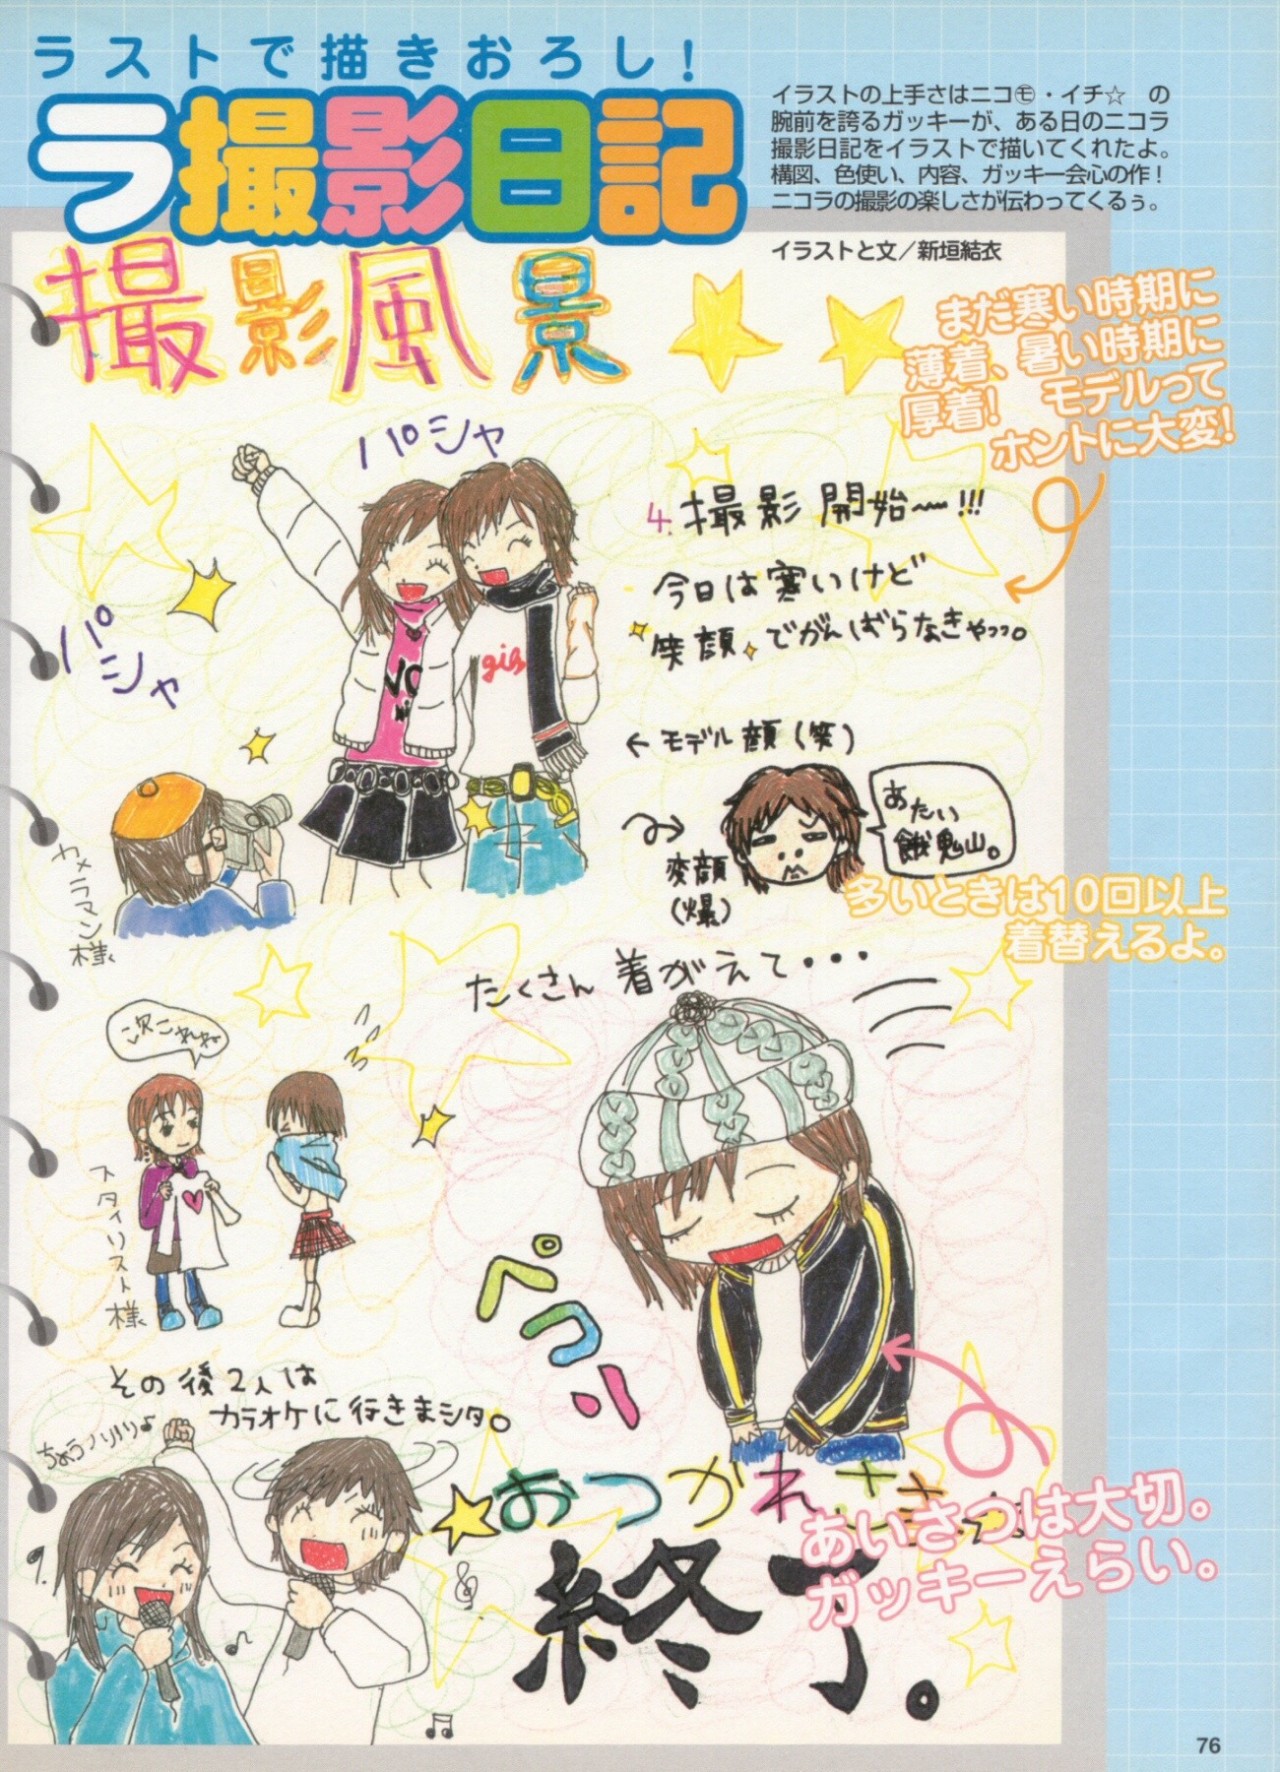 ラストで描きおろし!
ラ撮影日記
イラストの上手さはニコ㋲・イチ☆ の
腕前を誇るガッキーが、ある日のニコラ
撮影日記をイラストで描いてくれたよ。
構図、色使い、内容、ガッキー会心の作!
ニコラの撮影の楽しさが伝わってくるぅ。
イラストと文／新垣結衣
撮影風景
まだ寒い時期に
薄着、暑い時期に
厚着! モデルって
ホントに大変!
パシャ
パシャ
4. 撮影開始〜!!!
今日は寒いけど
笑顔でがんばらなきゃっっ。
← モデル顔(笑)
変顔
(爆)
あたい
餓鬼山。
カメラマン様
多いときは10回以上
着替えるよ。
たくさん着がえて・・・
次これね
スタイリスト様
ペコリ
その後2人は
カラオケに行きまシタ。
ちょうノリノリ♪
おつかれさま
あいさつは大切。
ガッキーえらい。
終了。
76